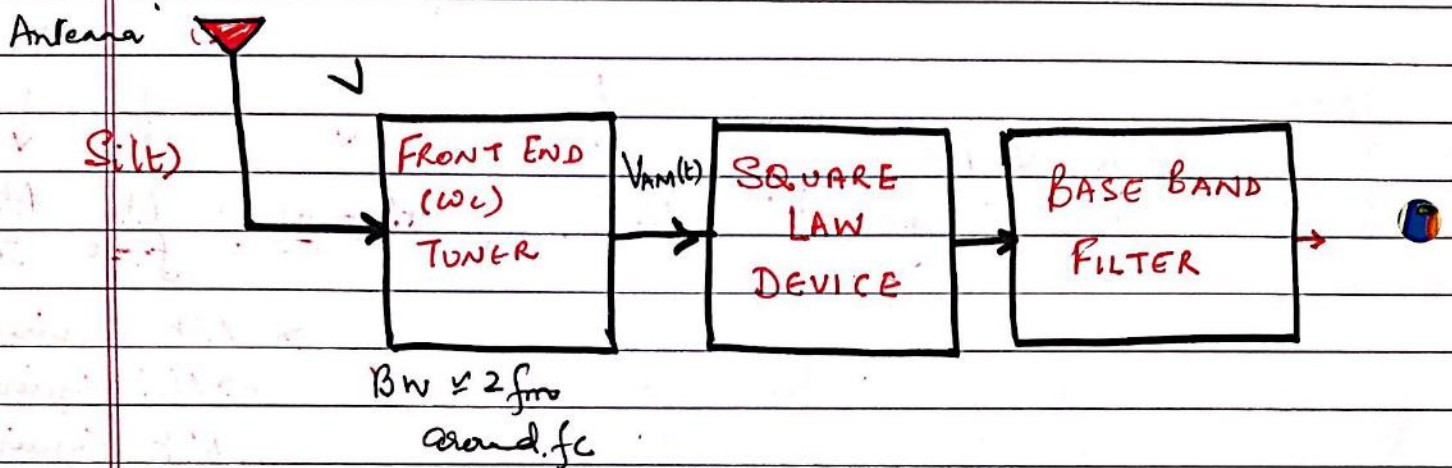 Antenna
Si(t)
FRONT END
(ωc)
TUNER
VAM(t)
SQUARE
LAW
DEVICE
BASE BAND
FILTER
BW ≃ 2fm
around fc